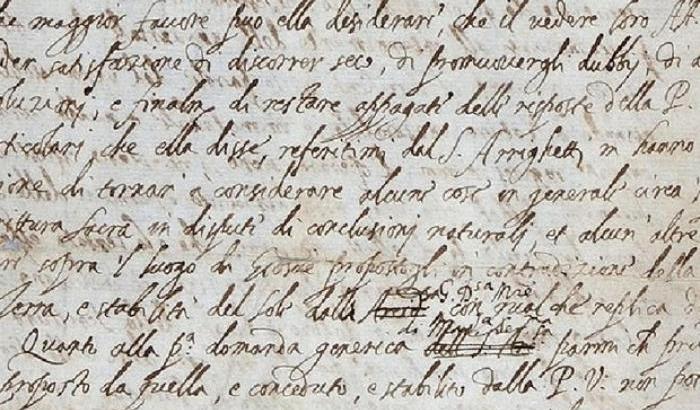 che maggior favore può ella desiderare, che il vedere loro
der satisfazione di discorrer seco, di promuovergli dubbij, di
oluzioni, e finalm.e di restare appagati delle risposte della P.
rticolari che ella disse, referitimi dal S. Arrighetti m hanno
ione di tornar à considerare alcune cose in generale circa
rittura Sacra in dispute di conclusioni naturali, et alcun'altre
sopra 'l luogo di Giosuè propostogli in contradizione della
Terra, e stabilità del Sole dalla G. D.sa M.re con qualche replica
Quanto alla p.a domanda generica di Mad.a Ser.ma parmi ch
proposto da quella, e conceduto, e stabilito dalla P. V. non